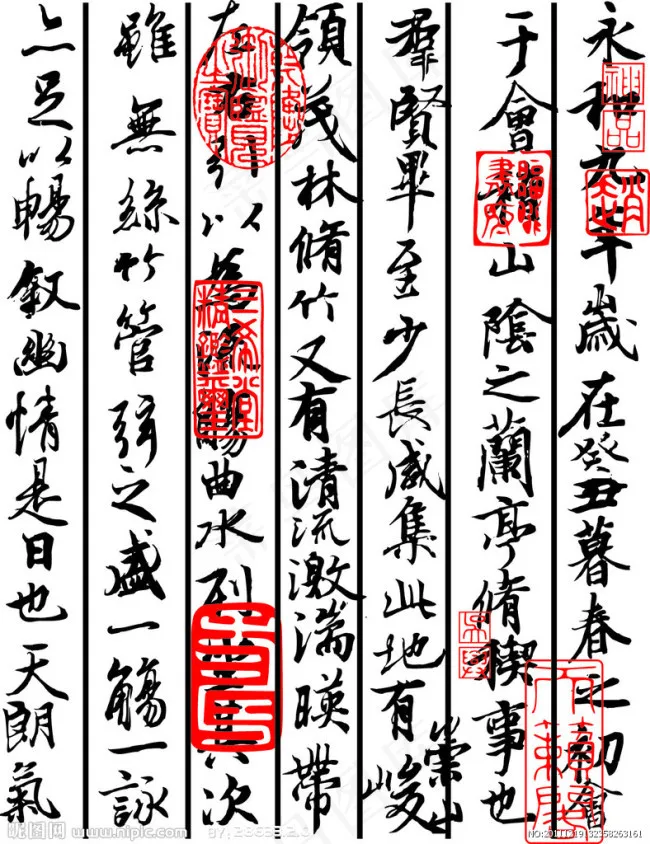 永和九年歲在癸丑暮春之初會
于會稽山陰之蘭亭脩稧事也
羣賢畢至少長咸集此地有崇山峻
領茂林脩竹又有清流激湍暎帶
左右引以為流觴曲水列坐其次
雖無絲竹管弦之盛一觴一詠
亦足以暢敘幽情是日也天朗氣
神品
三希堂精鑑璽
宜子孫
天籟閣
昵图网 www.nipic.com